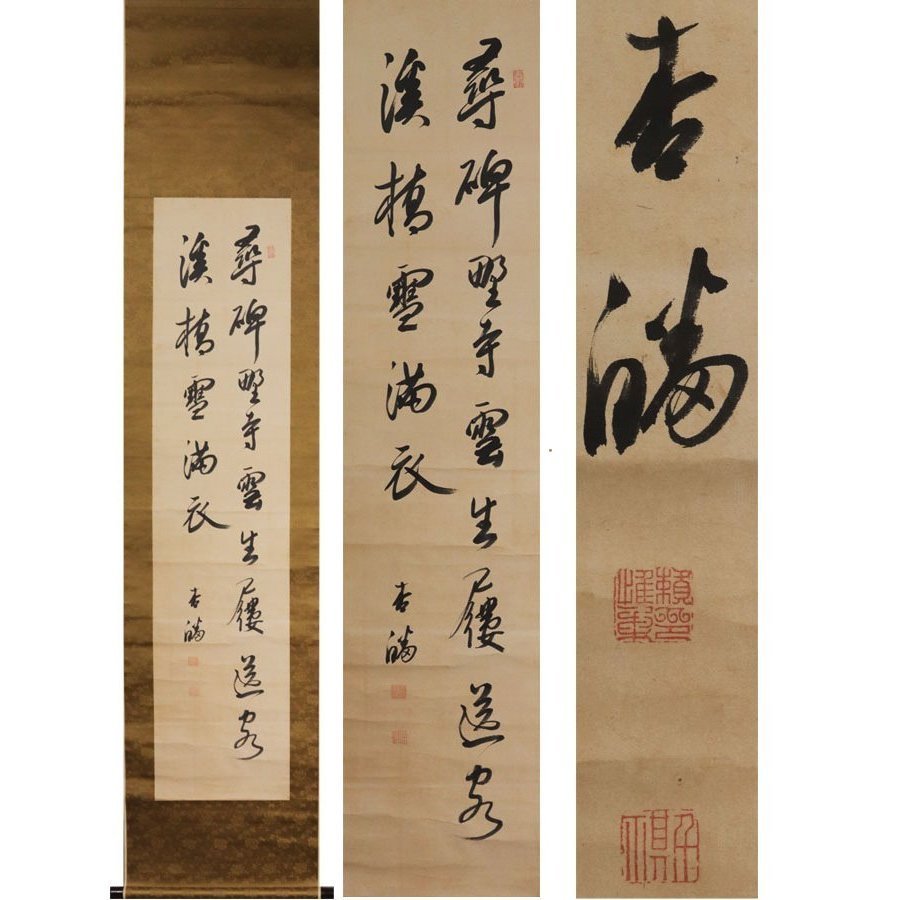 尋碑野寺雲生屨送客
溪橋雪滿衣
杏皤
尋碑野寺雲生屨送客
溪橋雪滿衣
杏皤
杏皤